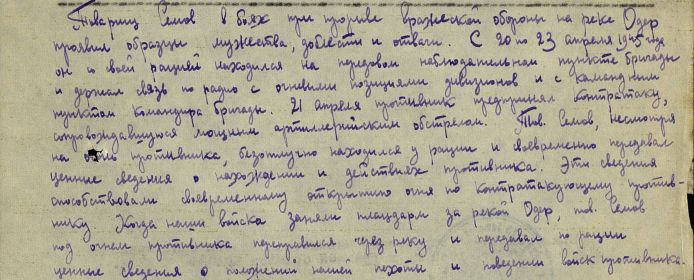 Товарищ Семов в боях при прорыве вражеской обороны на реке Одер
проявил образцы мужества, доблести и отваги. С 20 по 23 апреля 1945 года
он со своей рацией находился на передовом наблюдательном пункте бригады
и держал связь по радио с огневыми позициями дивизионов и с командным
пунктом командира бригады. 21 апреля противник предпринял контратаку,
сопровождавшуюся мощным артиллерийским обстрелом. Тов. Семов, несмотря
на огонь противника, безотлучно находился у рации и своевременно передавал
ценные сведения о нахождении и действиях противника. Эти сведения
способствовали своевременному открытию огня по контратакующему против-
нику. Когда наши войска заняли плацдарм за рекой Одер, тов. Семов
под огнем противника переправился через реку и передавал по рации
ценные сведения о положении нашей пехоты и поведении войск противника.